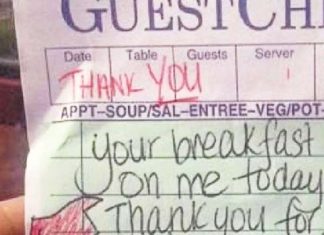 GUESTCH
Date Table Guests Server
THANK YOU
APPT-SOUP/SAL-ENTREE-VEG/POT-
your breakfast
on me today
Thank you for